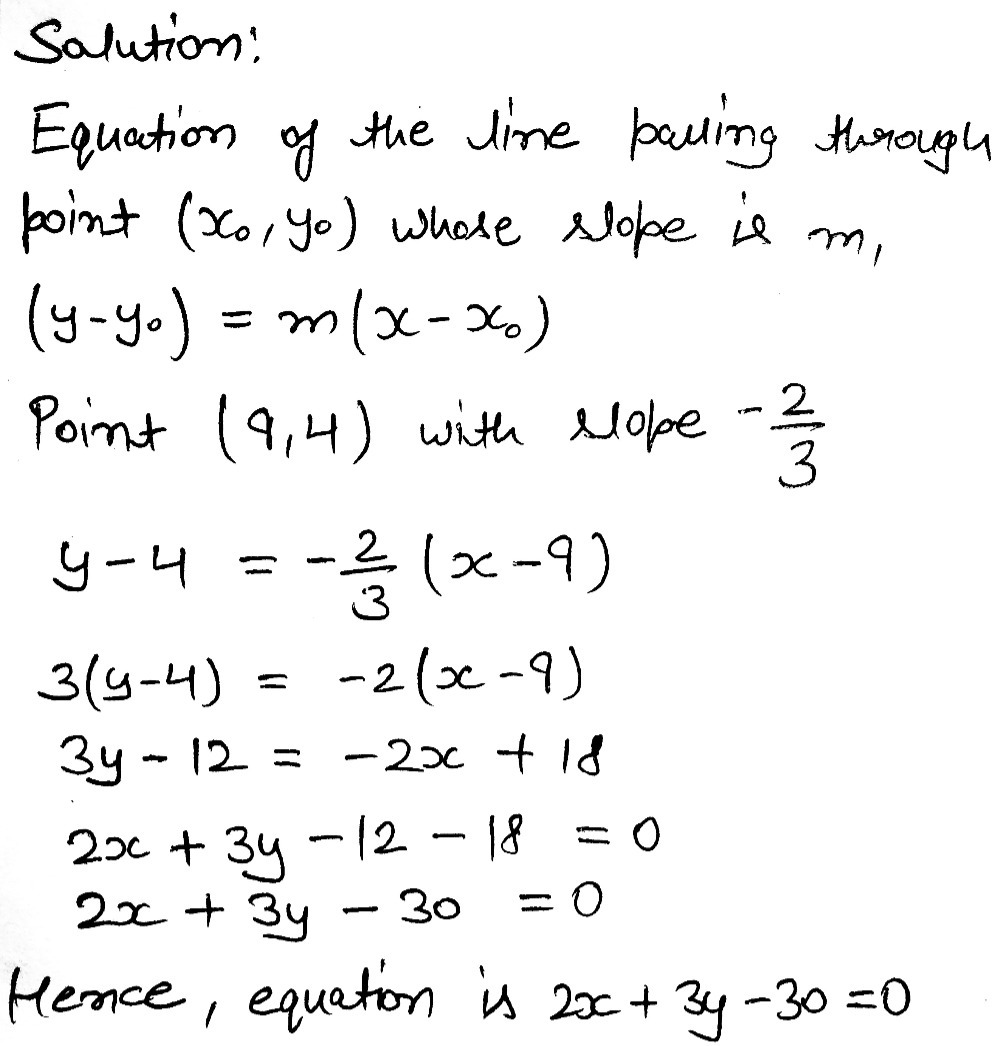 Solution:
Equation of the line passing through
point (x₀, y₀) whose slope is m,
(y-y₀) = m(x-x₀)
Point (9,4) with slope -2/3
y-4 = -2/3 (x-9)
3(y-4) = -2(x-9)
3y - 12 = -2x + 18
2x + 3y -12 - 18 = 0
2x + 3y - 30 = 0
Hence, equation is 2x + 3y -30 =0